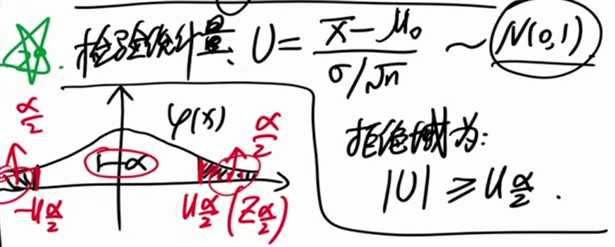 检验统计量、U = (x̄ - μ₀) / (σ/√n) ~ N(0,1)
α/2
φ(x)
α/2
1-α
-u α/2
u α/2 (Z α/2)
拒绝域为:
|U| ≥ u α/2 .